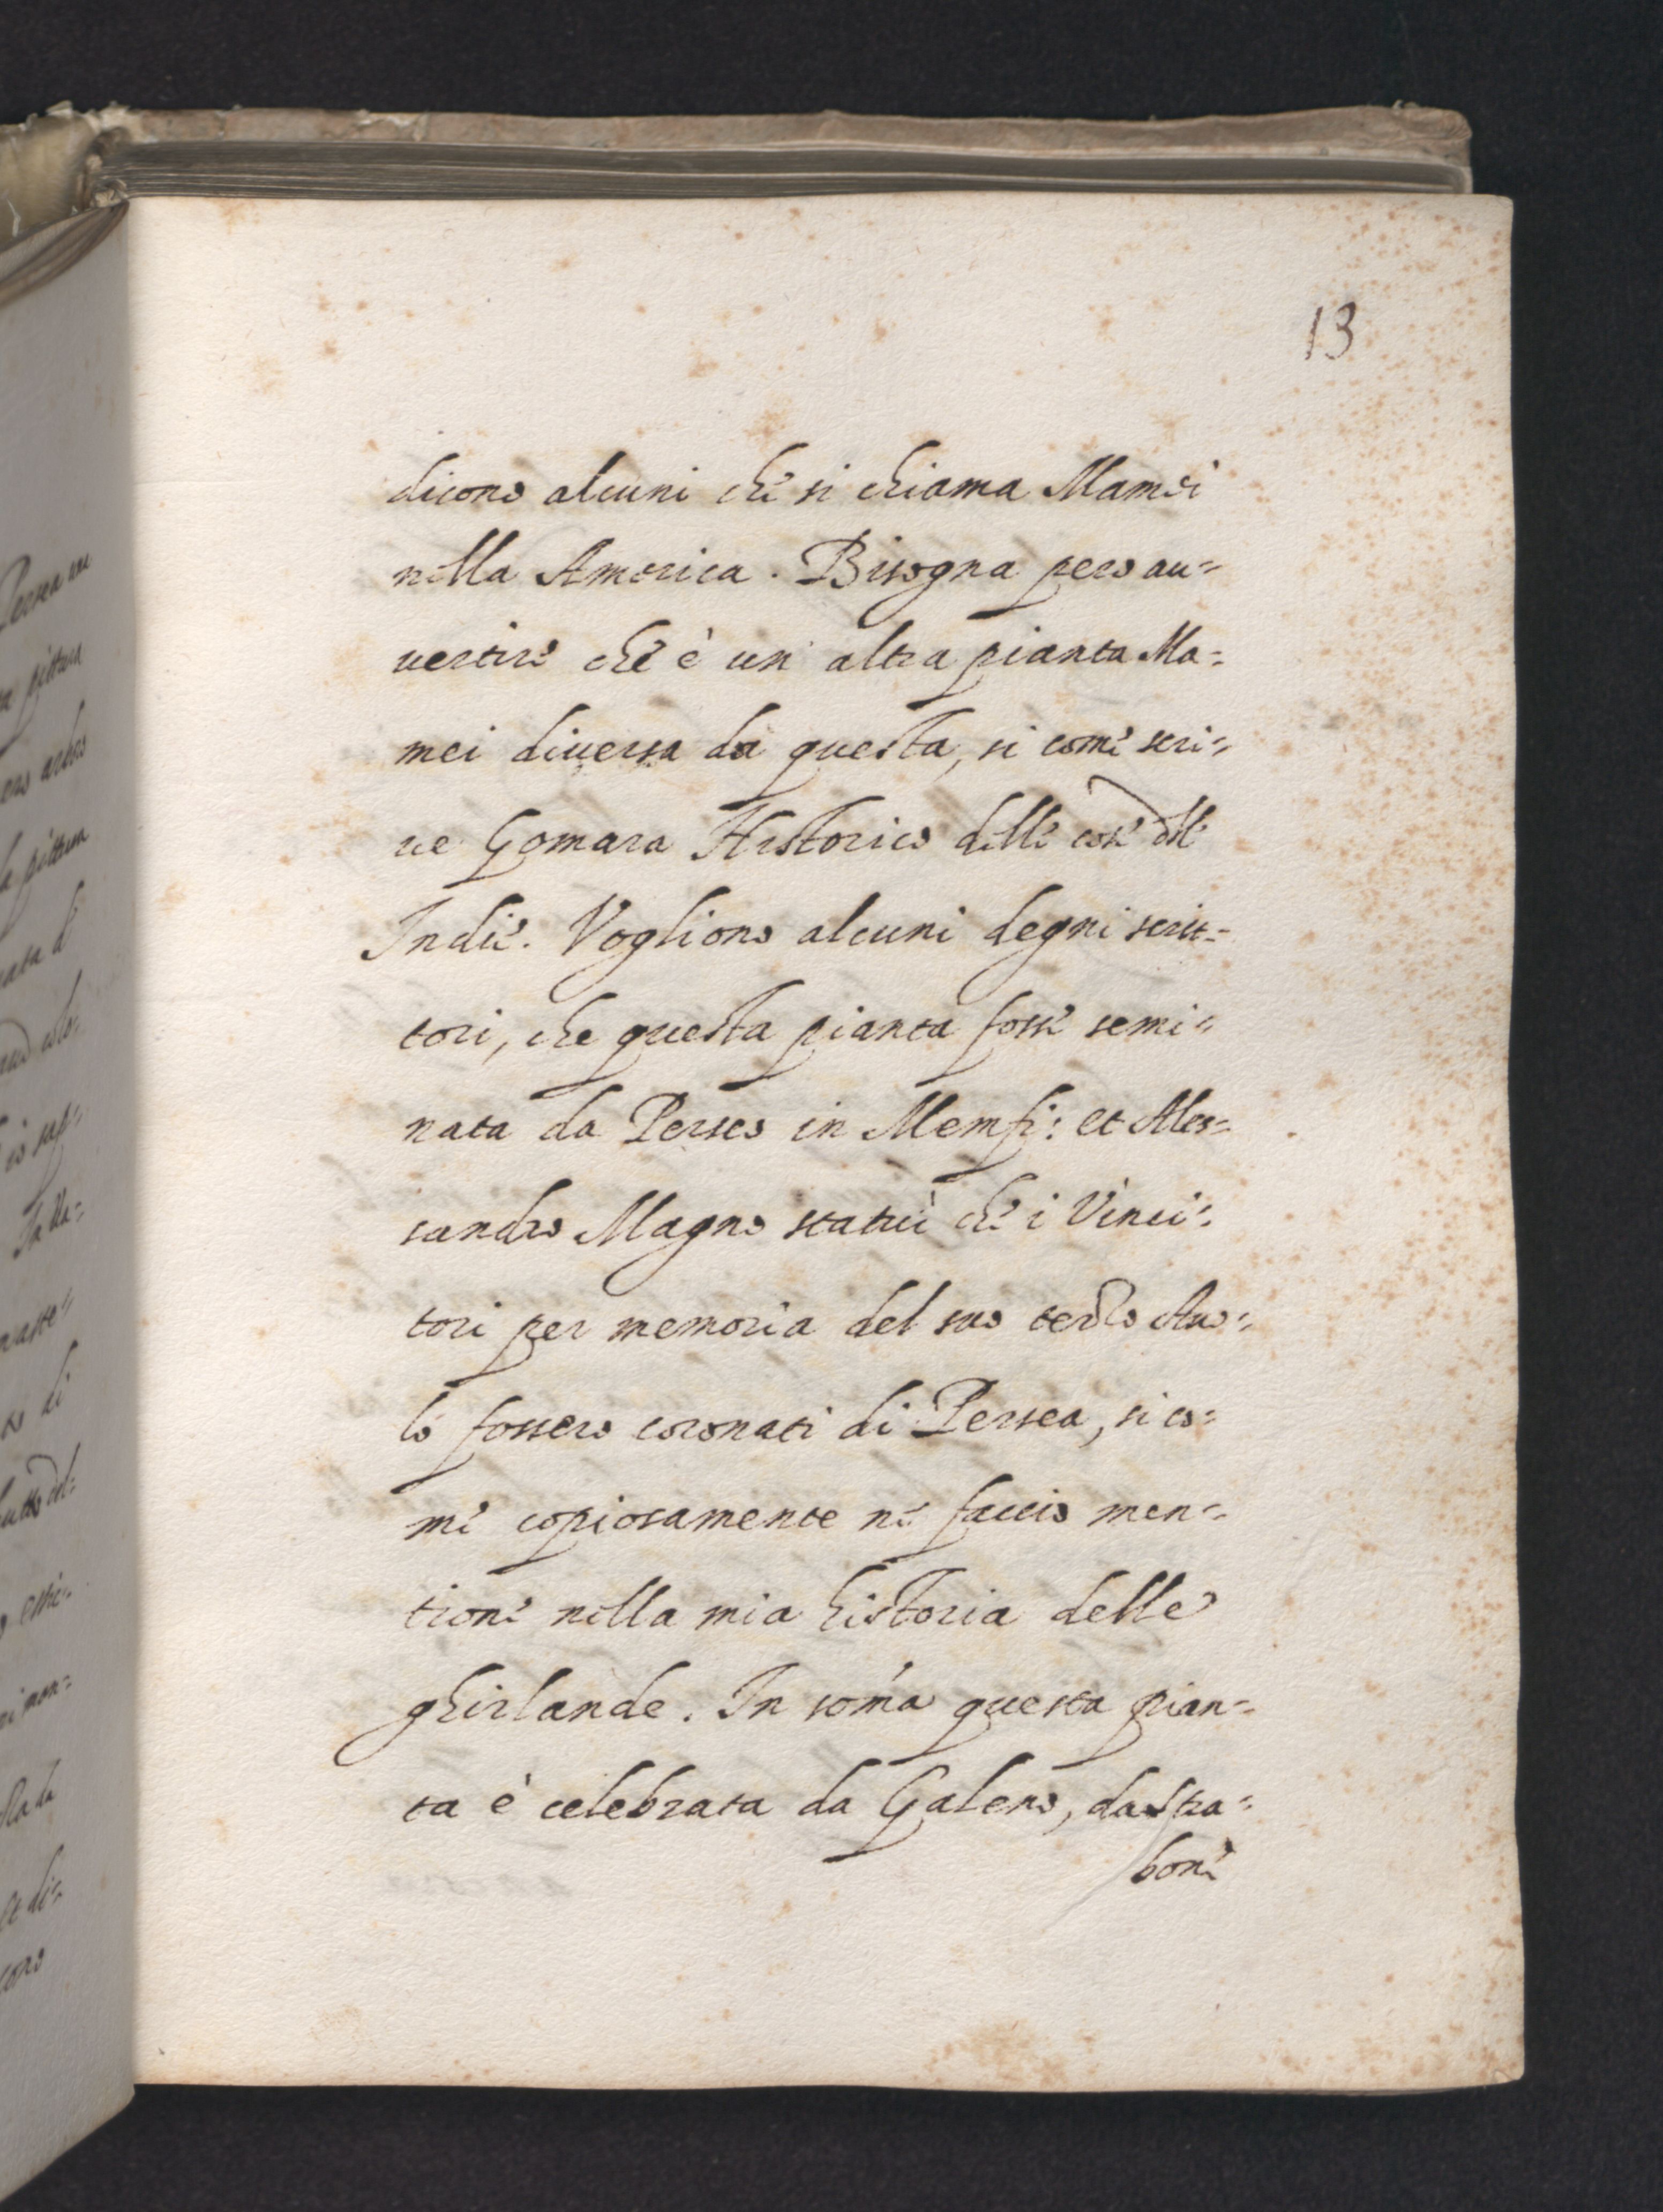 13
dicono alcuni che si chiama Mamei
nella America. Bisogna pero au=
uertire che è un altra pianta Ma=
mei diuersa da questa, si come scri=
ue Gomara Historico delle cose dell'
Indie. Vogliono alcuni degni scrit=
tori, che questa pianta fosse semi=
nata da Perseo in Memfi: et Ales=
sandro Magno statuì che i Vinci=
tori per memoria del suo Auo=
lo fossero coronati di Persea, si co=
me copiosamente ne faccio men=
tione nella mia historia delle
ghirlande. In som̃a questa pian=
ta è celebrata da Galeno, da Stra=
bone